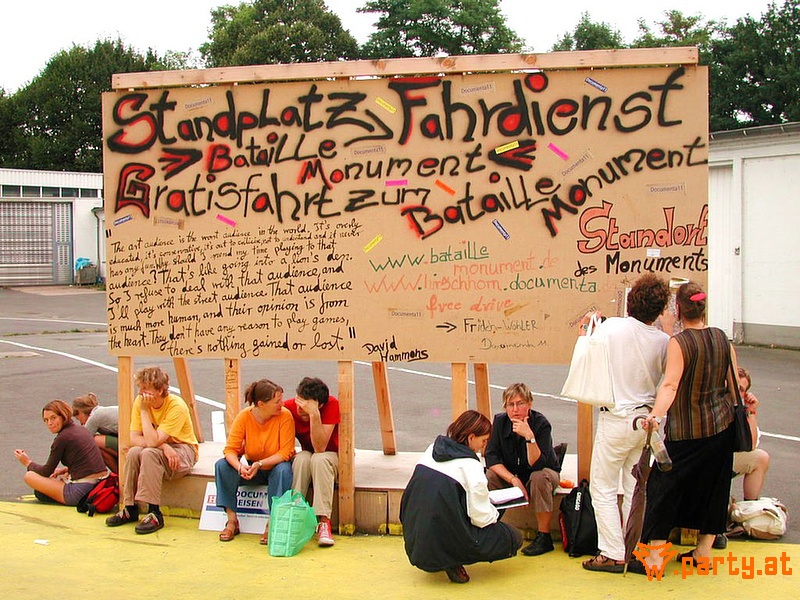 Standplatz > Fahrdienst
>> Bataille Monument <<
Gratisfahrt zum Bataille Monument
"The art audience is the worst audience in the world. It's overly
educated, it's conservative, it's out to criticize, not to understand and it never
has any fun. Why should I spend my time playing to that
audience? That's like going into a lion's den.
So I refuse to deal with that audience, and
I'll play with the street audience. That audience
is much more human, and their opinion is from
the heart. They don't have any reason to play games,
there's nothing gained or lost."
David
Hammons
www.bataille
monument.de
www.hirschhorn.documenta.
free drive
→ Friedr.-Wöhler
Documenta 11
Standort
des Monuments
Documenta11
DOCUM
REISEN
.party.at